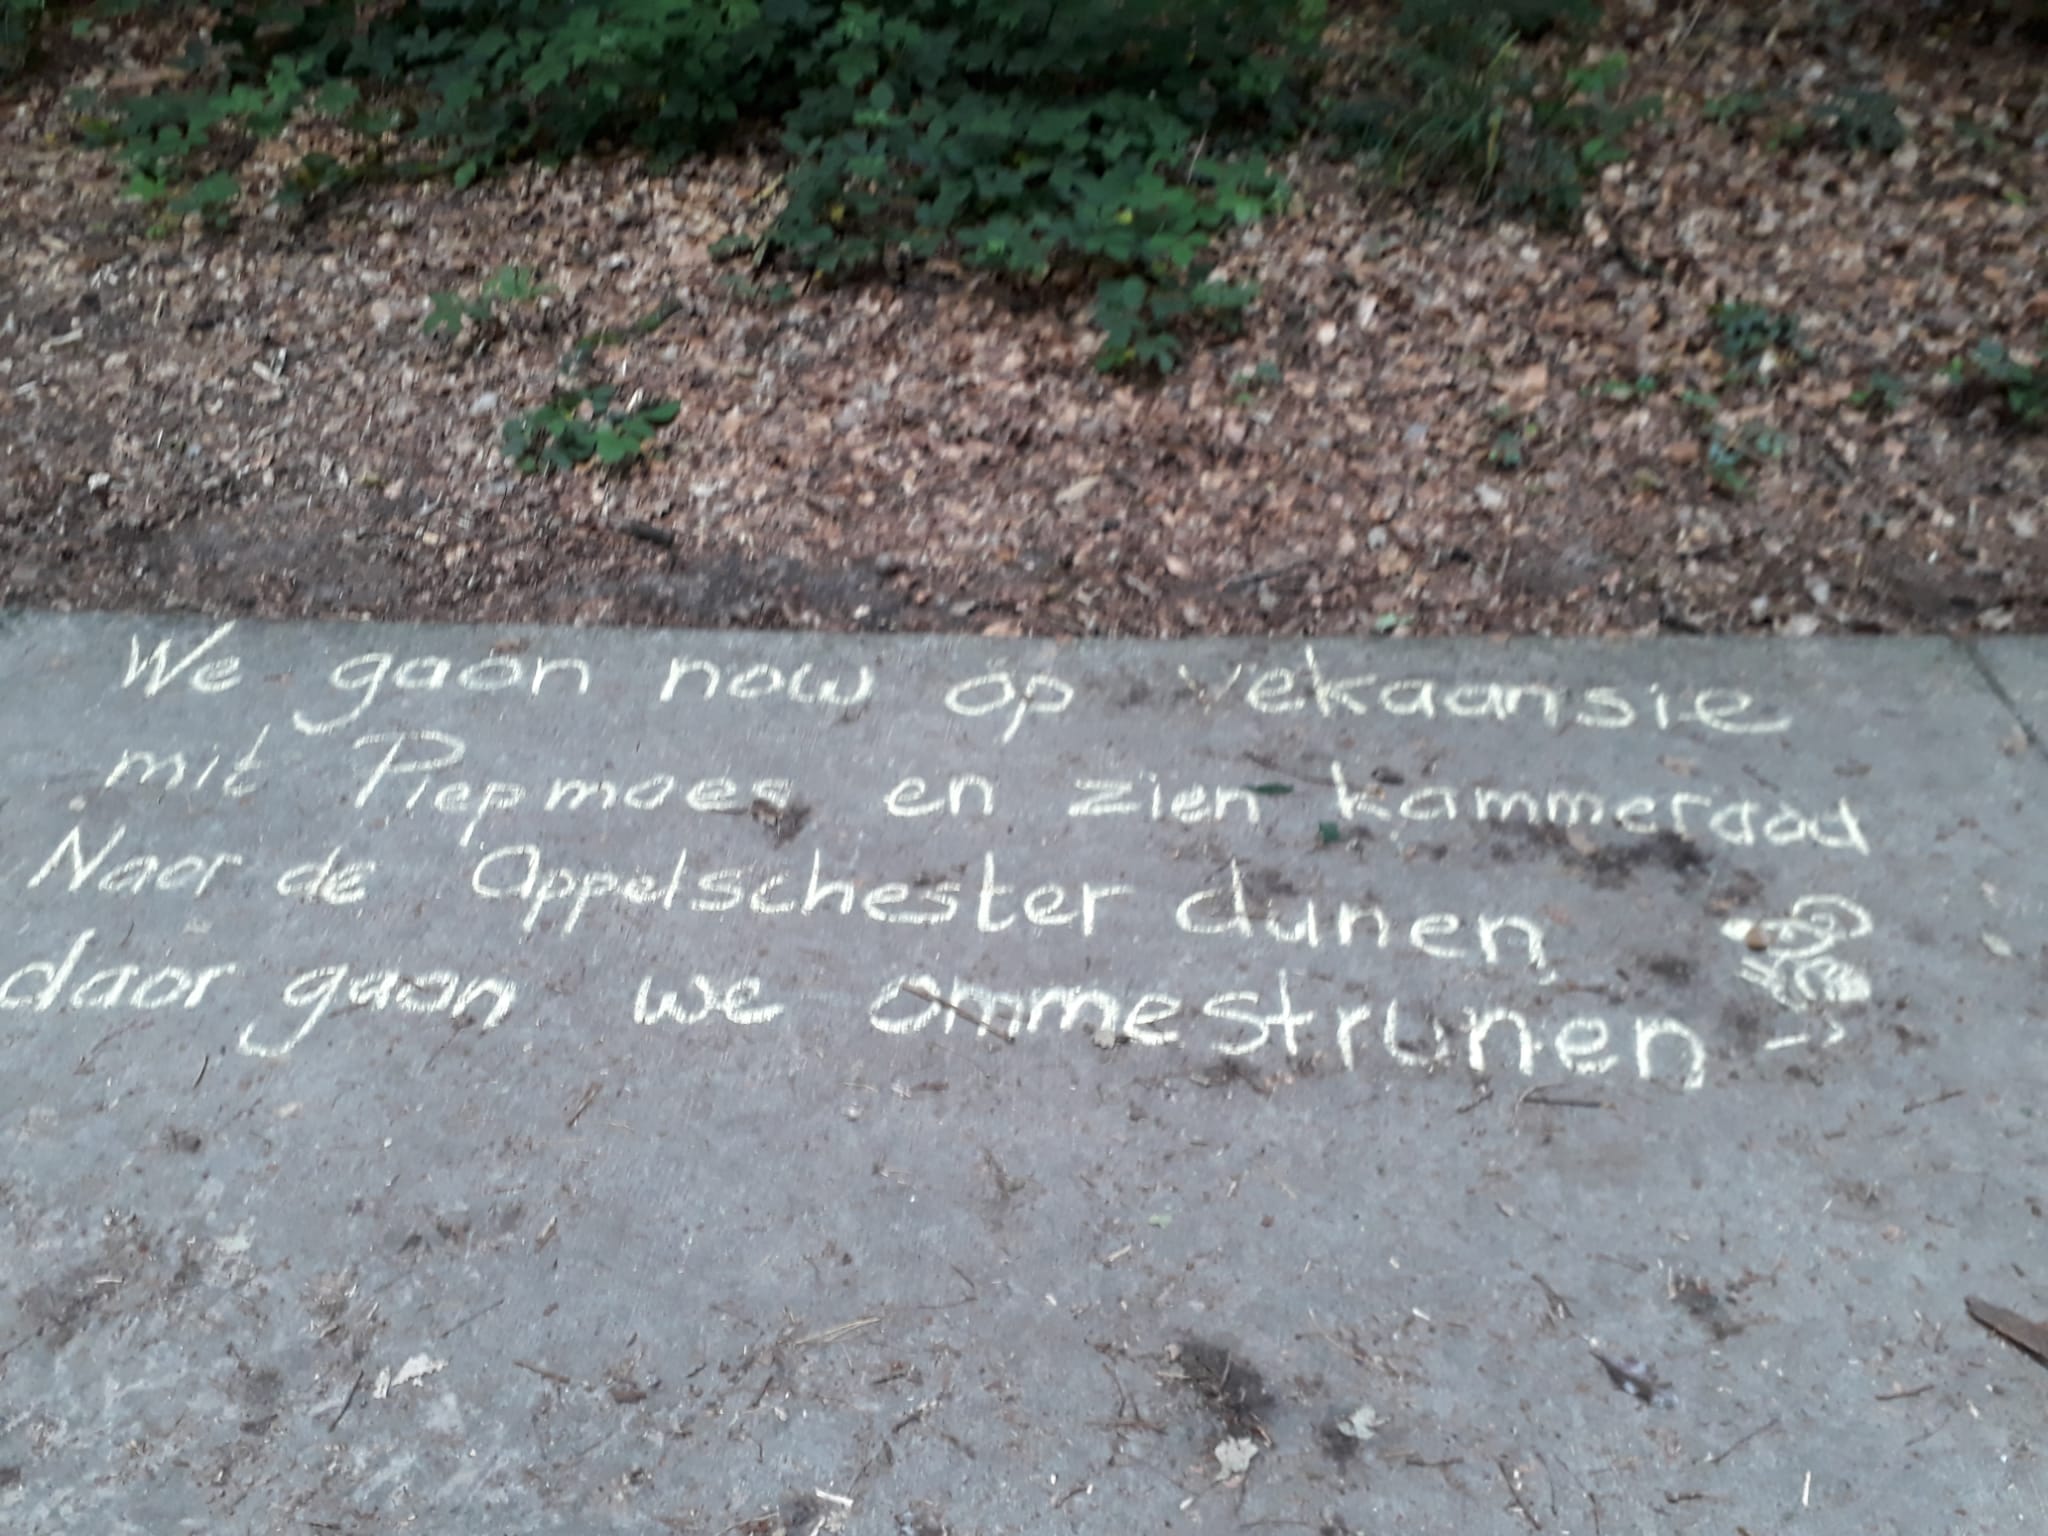 We gaon now op vekaansie
mit Piepmoes en zien kammeraod
Naor de Appelschester dunen,
daor gaon we ommestrunen